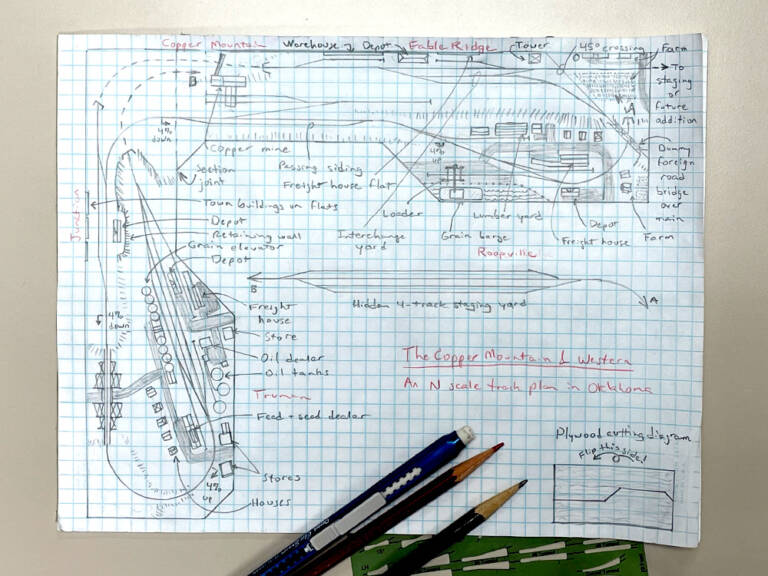 Copper Mountain
Warehouse
Depot
Fable Ridge
Tower
45° crossing
Farm
To
staging
or
future
addition
B
A
4%
down
Copper mine
Passing siding
4%
up
Section
joint
Freight house flat
Dummy
foreign
road
bridge
over
main
Junction
Town buildings on flats
Loader
Lumber yard
Depot
Depot
Retaining wall
Interchange
yard
Grain barge
Freight house
Farm
Grain elevator
Roopville
Depot
B
A
Hidden 4-track staging yard
Freight
house
4%
down
Store
Oil dealer
Oil tanks
The Copper Mountain & Western
An N scale track plan in Oklahoma
Truman
Feed + seed dealer
Plywood cutting diagram
Flip this side!
Stores
4%
up
Houses